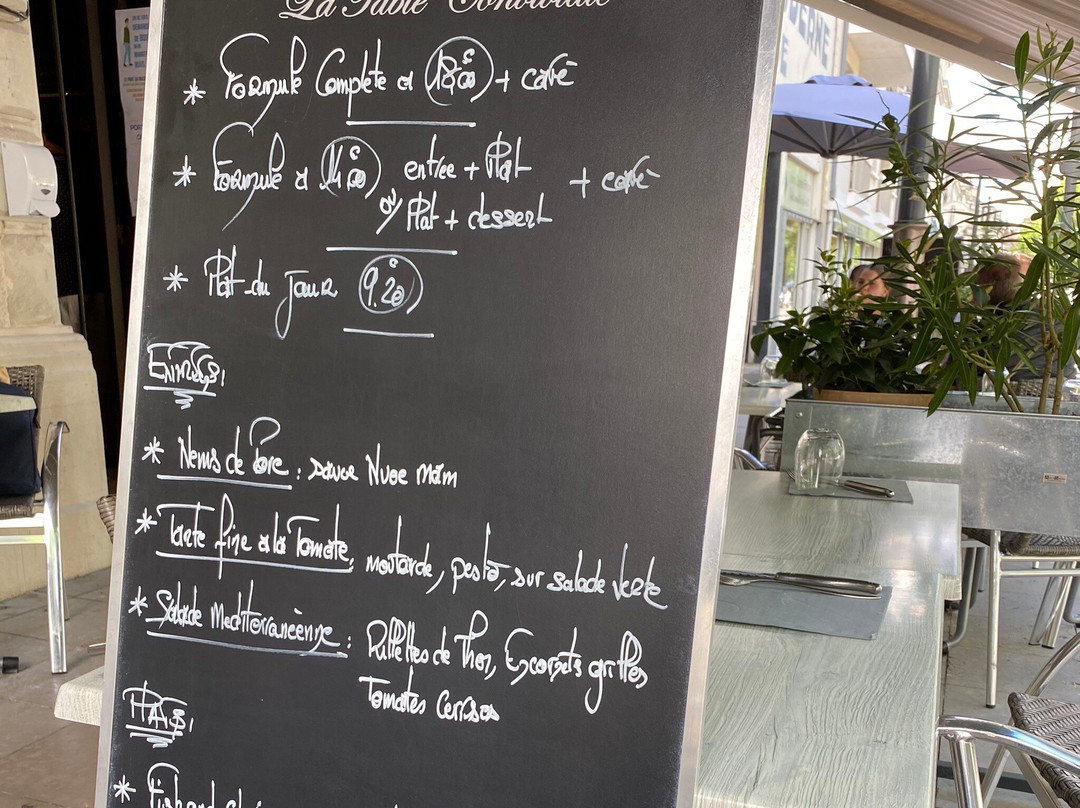 La Table Conviviale
* Formule Complète à 18€00 + café
* Formule à 14€50 entrée + Plat + café
ou Plat + dessert
* Plat du Jour 9€20
Entrées
* Nems de Porc : sauce Nuoc mâm
* Tarte fine à la Tomate, moutarde, pesto, sur salade verte
* Salade Mediterranéenne : Rillettes de Thon, Escargots grillés
Tomates Cerises
Plats
*
DERNE